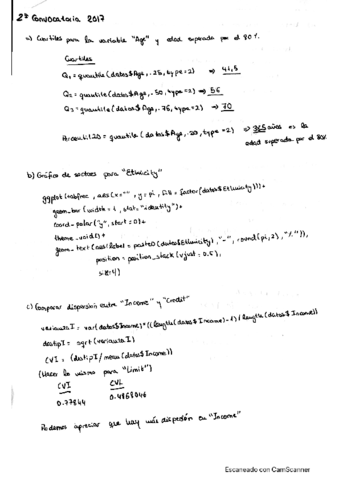 2ª Convocatoria 2017
a) Cuartiles para la variable "Age" y edad superada por el 80%
Cuartiles
Q1 = quantile (datos$Age, .25, type=2) ⇒ 41,5
Q2 = quantile (datos$Age, .50, type=2) ⇒ 56
Q3 = quantile (datos$Age, .75, type=2) ⇒ 70
Percentil20 = quantile (datos$Age, .20, type=2) ⇒ años es la
edad superada por el 80%
b) Gráfico de sectores para "Ethnicity"
ggplot (tabfrec, aes (x="", y=pi, fill= factor(datos$Ethnicity)))+
geom_bar (width = 1, stat= "identity")+
coord_polar ("y", start=0)+
theme_void()+
geom_text (aes(label= paste0 (datos$Ethnicity), "-", round(pi,2), "%")),
position = position_stack (vjust=0.5),
size=4)
c) Comparar dispersión entre "Income" y "Credit"
varianzaI = var(datos$Income)*((length(datos$Income)-1)/length(datos$Income))
destipI = sqrt (varianzaI)
CVI = (destipI/mean(datos$Income))
(Hacer lo mismo para "Limit")
CVI CVL
0.77844 0.4868046
Podemos apreciar que hay más dispersión en "Income"
Escaneado con CamScanner